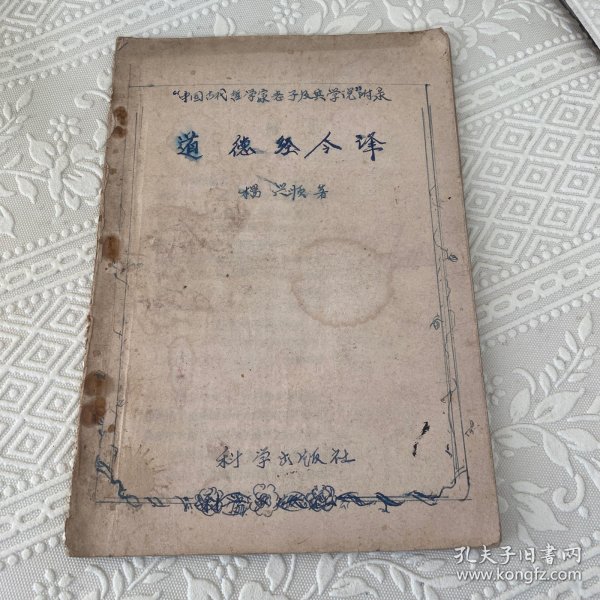 "中国古代哲学家老子及其学说"附录
道德经今译
杨兴顺著
科学出版社
孔夫子旧书网
www.kongfz.com